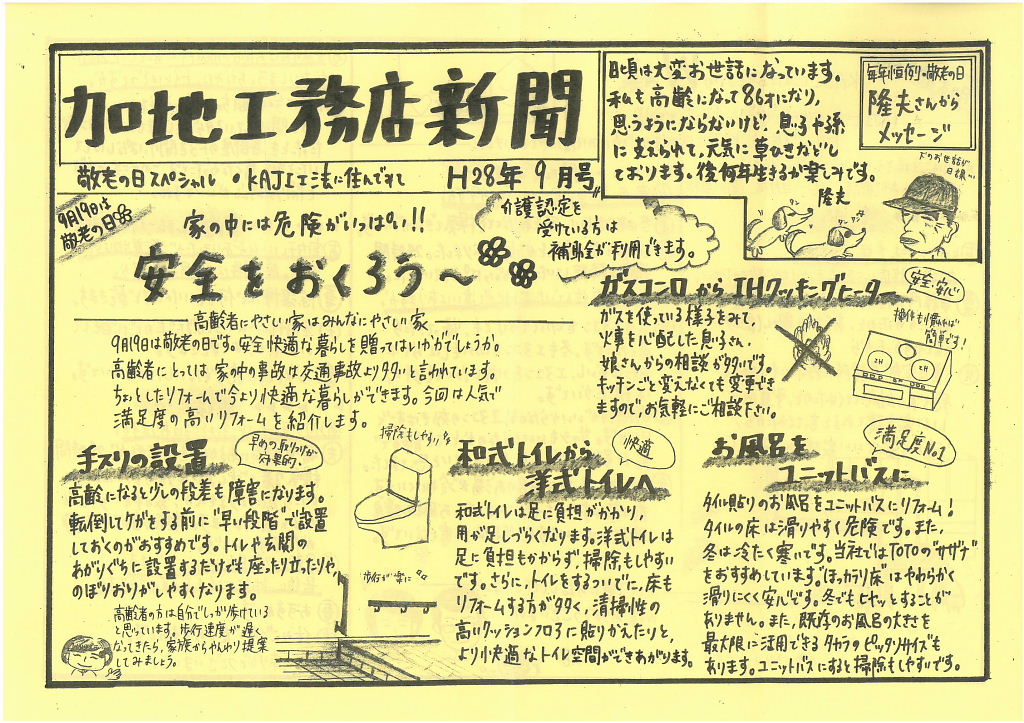 加地工務店新聞
敬老の日スペシャル ・KAJI工法に住んですて
H28年 9月号
日頃は大変お世話になっています。
私も高齢になって86才になり、
思うようにならないけど、息子や孫
に支えられて、元気に草ひきなどし
ております。後何年生きるか楽しみです。
隆夫
毎年恒例・敬老の日
隆夫さんから
メッセージ
犬のお世話が
日課…
9月19日は
敬老の日
家の中には危険がいっぱい!!
安全をおくろう〜
介護認定を
受けている方は
補助金が利用できます。
高齢者にやさしい家はみんなにやさしい家
9月19日は敬老の日です。安全快適な暮らしを贈ってはいかがでしょうか。
高齢者にとっては 家の中の事故は交通事故より多いと言われています。
ちょっとしたリフォームで今より快適な暮らしができます。今回は人気で
満足度の高いリフォームを紹介します。
ガスコンロからIHクッキングヒーター
安全・安心
ガスを使っている様子をみて、
火事を心配した息子さん、
娘さんからの相談が多いです。
キッチンごと変えなくても変更でき
ますので、お気軽にご相談下さい。
操作も慣れれば
簡単です!
手スリの設置
早めの取りつけが
効果的。
高齢になると少しの段差も障害になります。
転倒してケガをする前に"早い段階"で設置
しておくのがおすすめです。トイレや玄関の
あがりぐちに設置するだけでも座ったり立ったりや、
のぼりおりがしやすくなります。
高齢者の方は自分でしっかり歩けている
と思っています。歩行速度が遅く
なってきたら、家族からやんわり提案
してみましょう。
掃除もしやすい
歩行が楽に
和式トイレから
洋式トイレへ
快適
和式トイレは足に負担がかかり、
用が足しづらくなります。洋式トイレは
足に負担もかからず、掃除もしやすい
です。さらに、トイレをするついでに、床も
リフォームする方が多く、清掃性の
高いクッションフロアに貼りかえたりと、
より快適なトイレ空間ができあがります。
お風呂を
ユニットバスに
満足度No.1
タイル貼りのお風呂をユニットバスにリフォーム!
タイルの床は滑りやすく危険です。また、
冬は冷たく寒いです。当社ではTOTOの"サザナ"
をおすすめしています。"ほっカラリ床"はやわらかく
滑りにくく安心です。冬でもヒヤッとすることが
ありません。また、既存のお風呂の大きさを
最大限に活用できるタカラのピッタリサイズも
あります。ユニットバスにすると掃除もしやすいです。